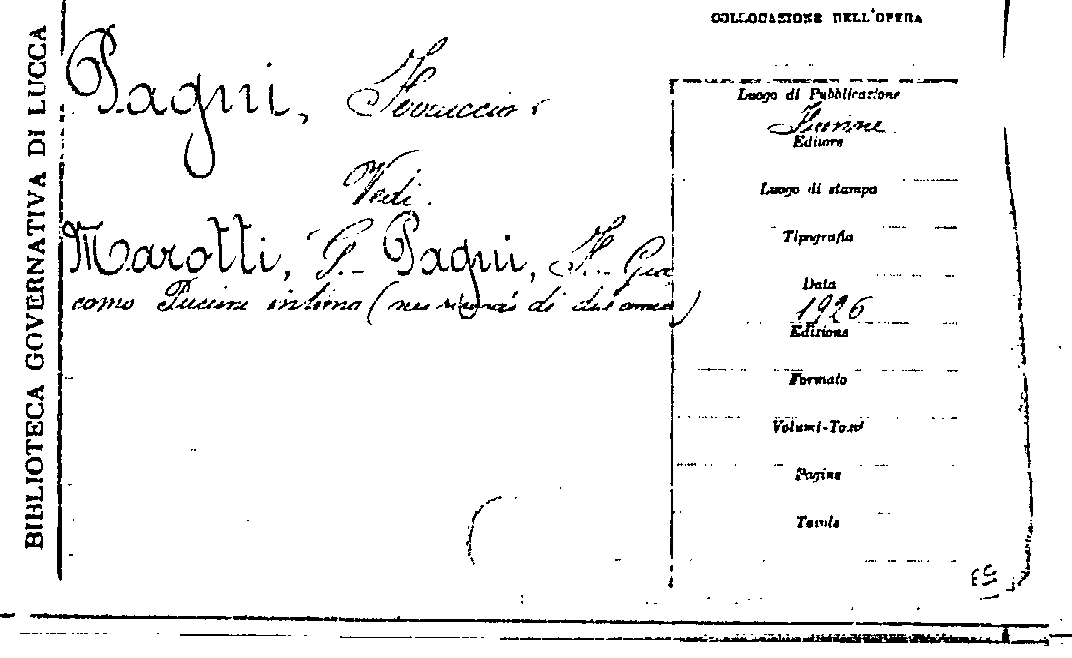 BIBLIOTECA GOVERNATIVA DI LUCCA
COLLOCAZIONE DELL'OPERA
Pagni, Ferruccio
Vedi.
Marotti, G. - Pagni, F. - Gia
como Puccini intimo (nei ricordi di due amici)
Luogo di Pubblicazione
Firenze
Editore
Luogo di stampa
Tipografia
Data
1926
Edizione
Formato
Volumi-Tomi
Pagine
Tavole